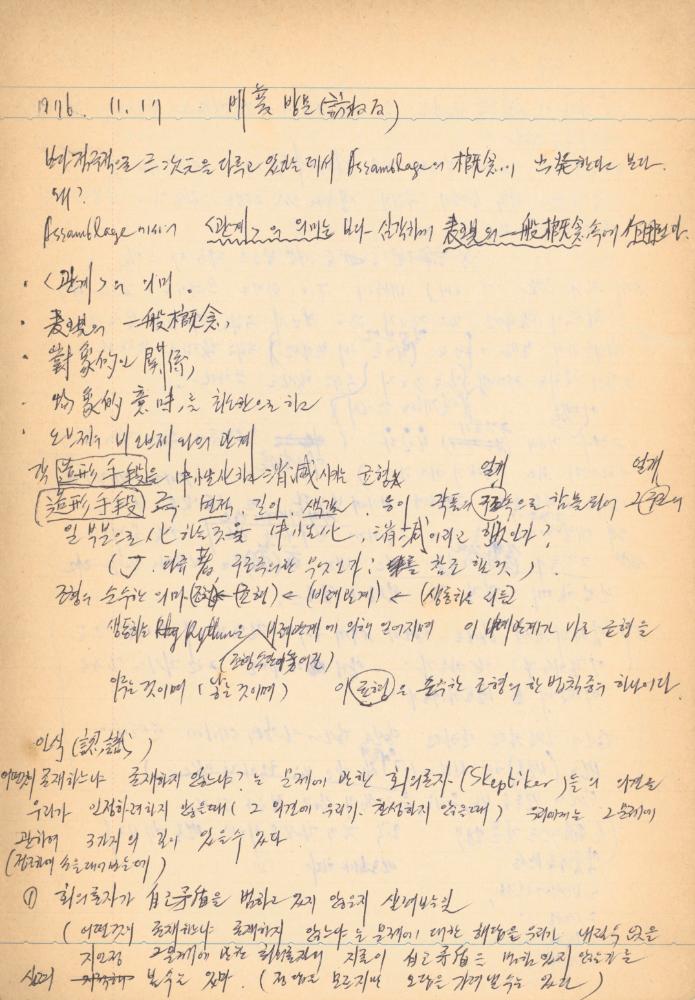 1976. 11. 17 비 방문 (訪問)
보다 적극적으로 三次元을 다루고 있는데서 Assamblage의 槪念이 出発한다고 본다.
왜?
Assamblage에서의 <관계>의 의미는 보다 심각하게 表現의 一般槪念속에 作用된다.
· <관계>의 의미.
· 表現의 一般槪念,
· 對象的인 關係,
· 物象的 意味,를 최소한으로 하고
· 오브제와 비오브제와의 관계
각 造形手段을 中性化하고 消滅시키는 균형 일개 일개
造形手段 즉, 면적, 길이, 색감, 등이 작품의 구조속으로 함몰되어 그 구조의
일부분으로 化하는 것을 中性化, 消滅이라고 했던가?
( 피쥬 著, 구조주의란 무엇인가? 를 참조할 것.)
조형의 순수한 의미 (조형) ← (균형) ← (비례관계) ← (생동하는 리듬)
생동하는 Rythm은 비례관계에 의해 얻어지며 이 비례관계가 바로 균형을
(조형수단이 놓이진)
이루는 것이며 (낳는 것이며) 이 균형은 순수한 조형의 한 법칙중의 하나이다.
인식 (認識)
어떤것이 존재하느냐 존재하지 않느냐? 는 문제에 관한 회의론자 (Skeptiker)들의 의견을
우리가 인정하려하지 않을때 (그 의견에 우리가 찬성하지 않을때) 우리에게는 그 문제에
관하여 3가지의 길이 있을수 있다.
① 회의론자가 自己矛盾을 범하고 있지 않은지 살펴보는 일
(어떤것이 존재하느냐 존재하지 않느냐는 문제에 대한 해답을 우리가 내릴수 없을
지언정 그 문제에 관한 회의론자의 지론이 自己矛盾을 범하고 있지 않은가를
살펴 볼수는 있다. (정답은 모르지만 오답을 가려낼수는 있다)